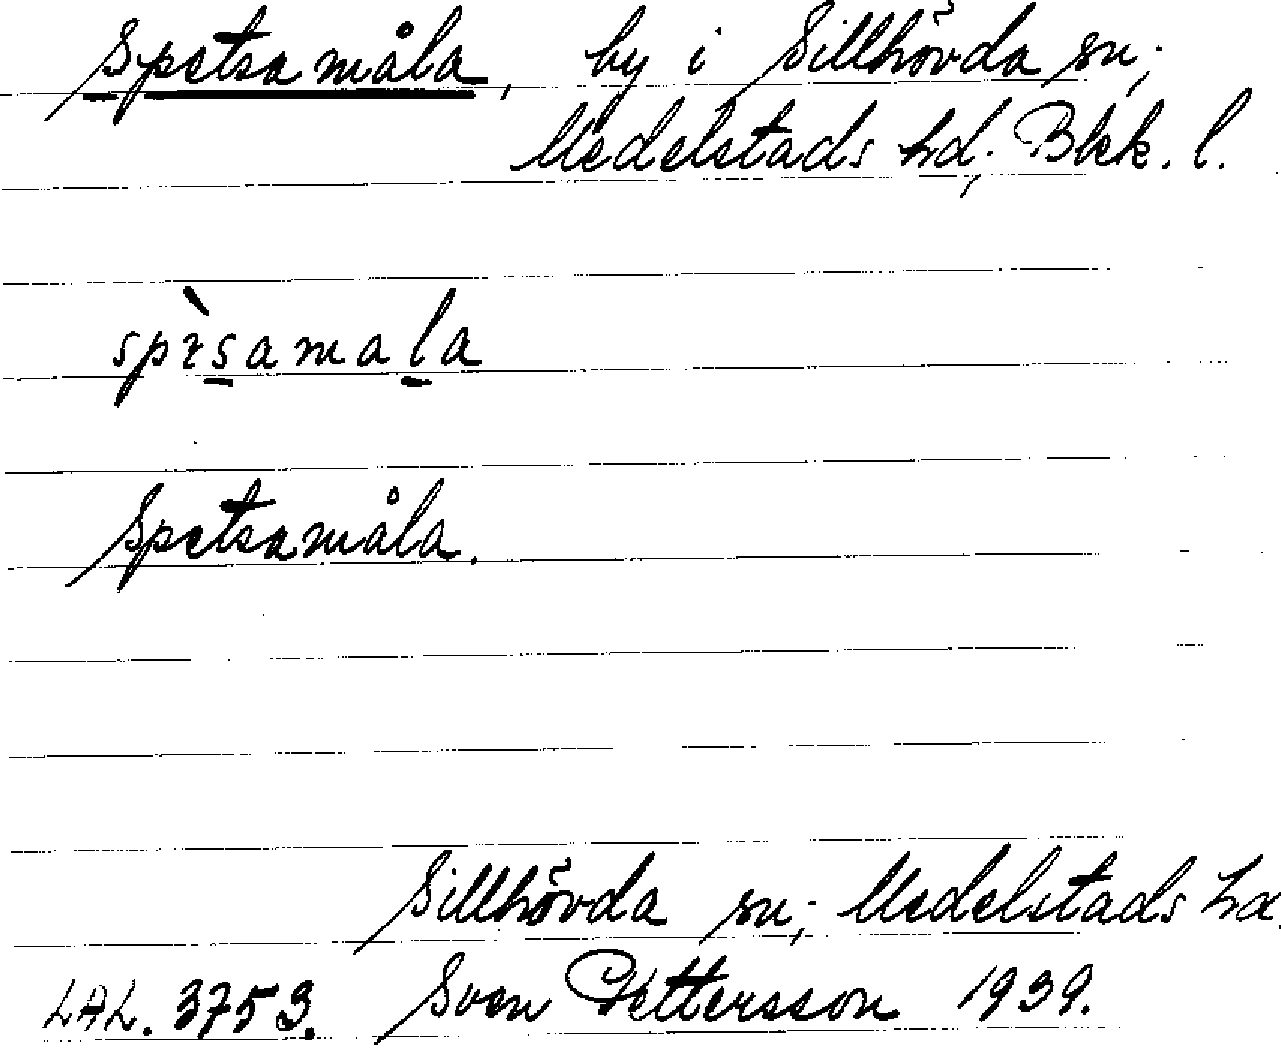 Spetsamåla, by i Sillhövda sn,
Medelstads hd, Blek. l.
spìsamala
Spetsamåla.
Sillhövda sn, Medelstads hd
LAL. 3753. Sven Pettersson 1939.